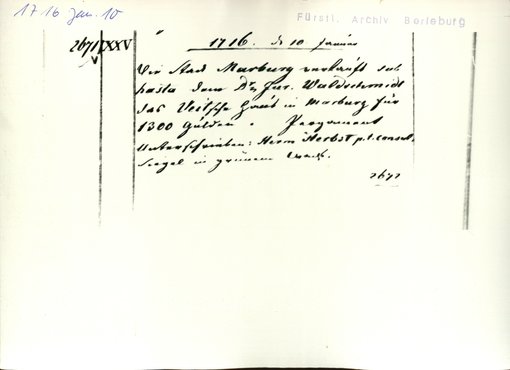 1716 Jan. 10
Fürstl. Archiv Berleburg
2671 XXV
1716. d 10 Januar
Die Stadt Marburg verkauft sub
hasta dem Dr. jur. Waldschmidt
das Veitsche Haus in Marburg für
1300 Gulden. Pergament
Unterschrieben: Herm Herbst p.t. consul,
Siegel in grünem Wachs.
2671